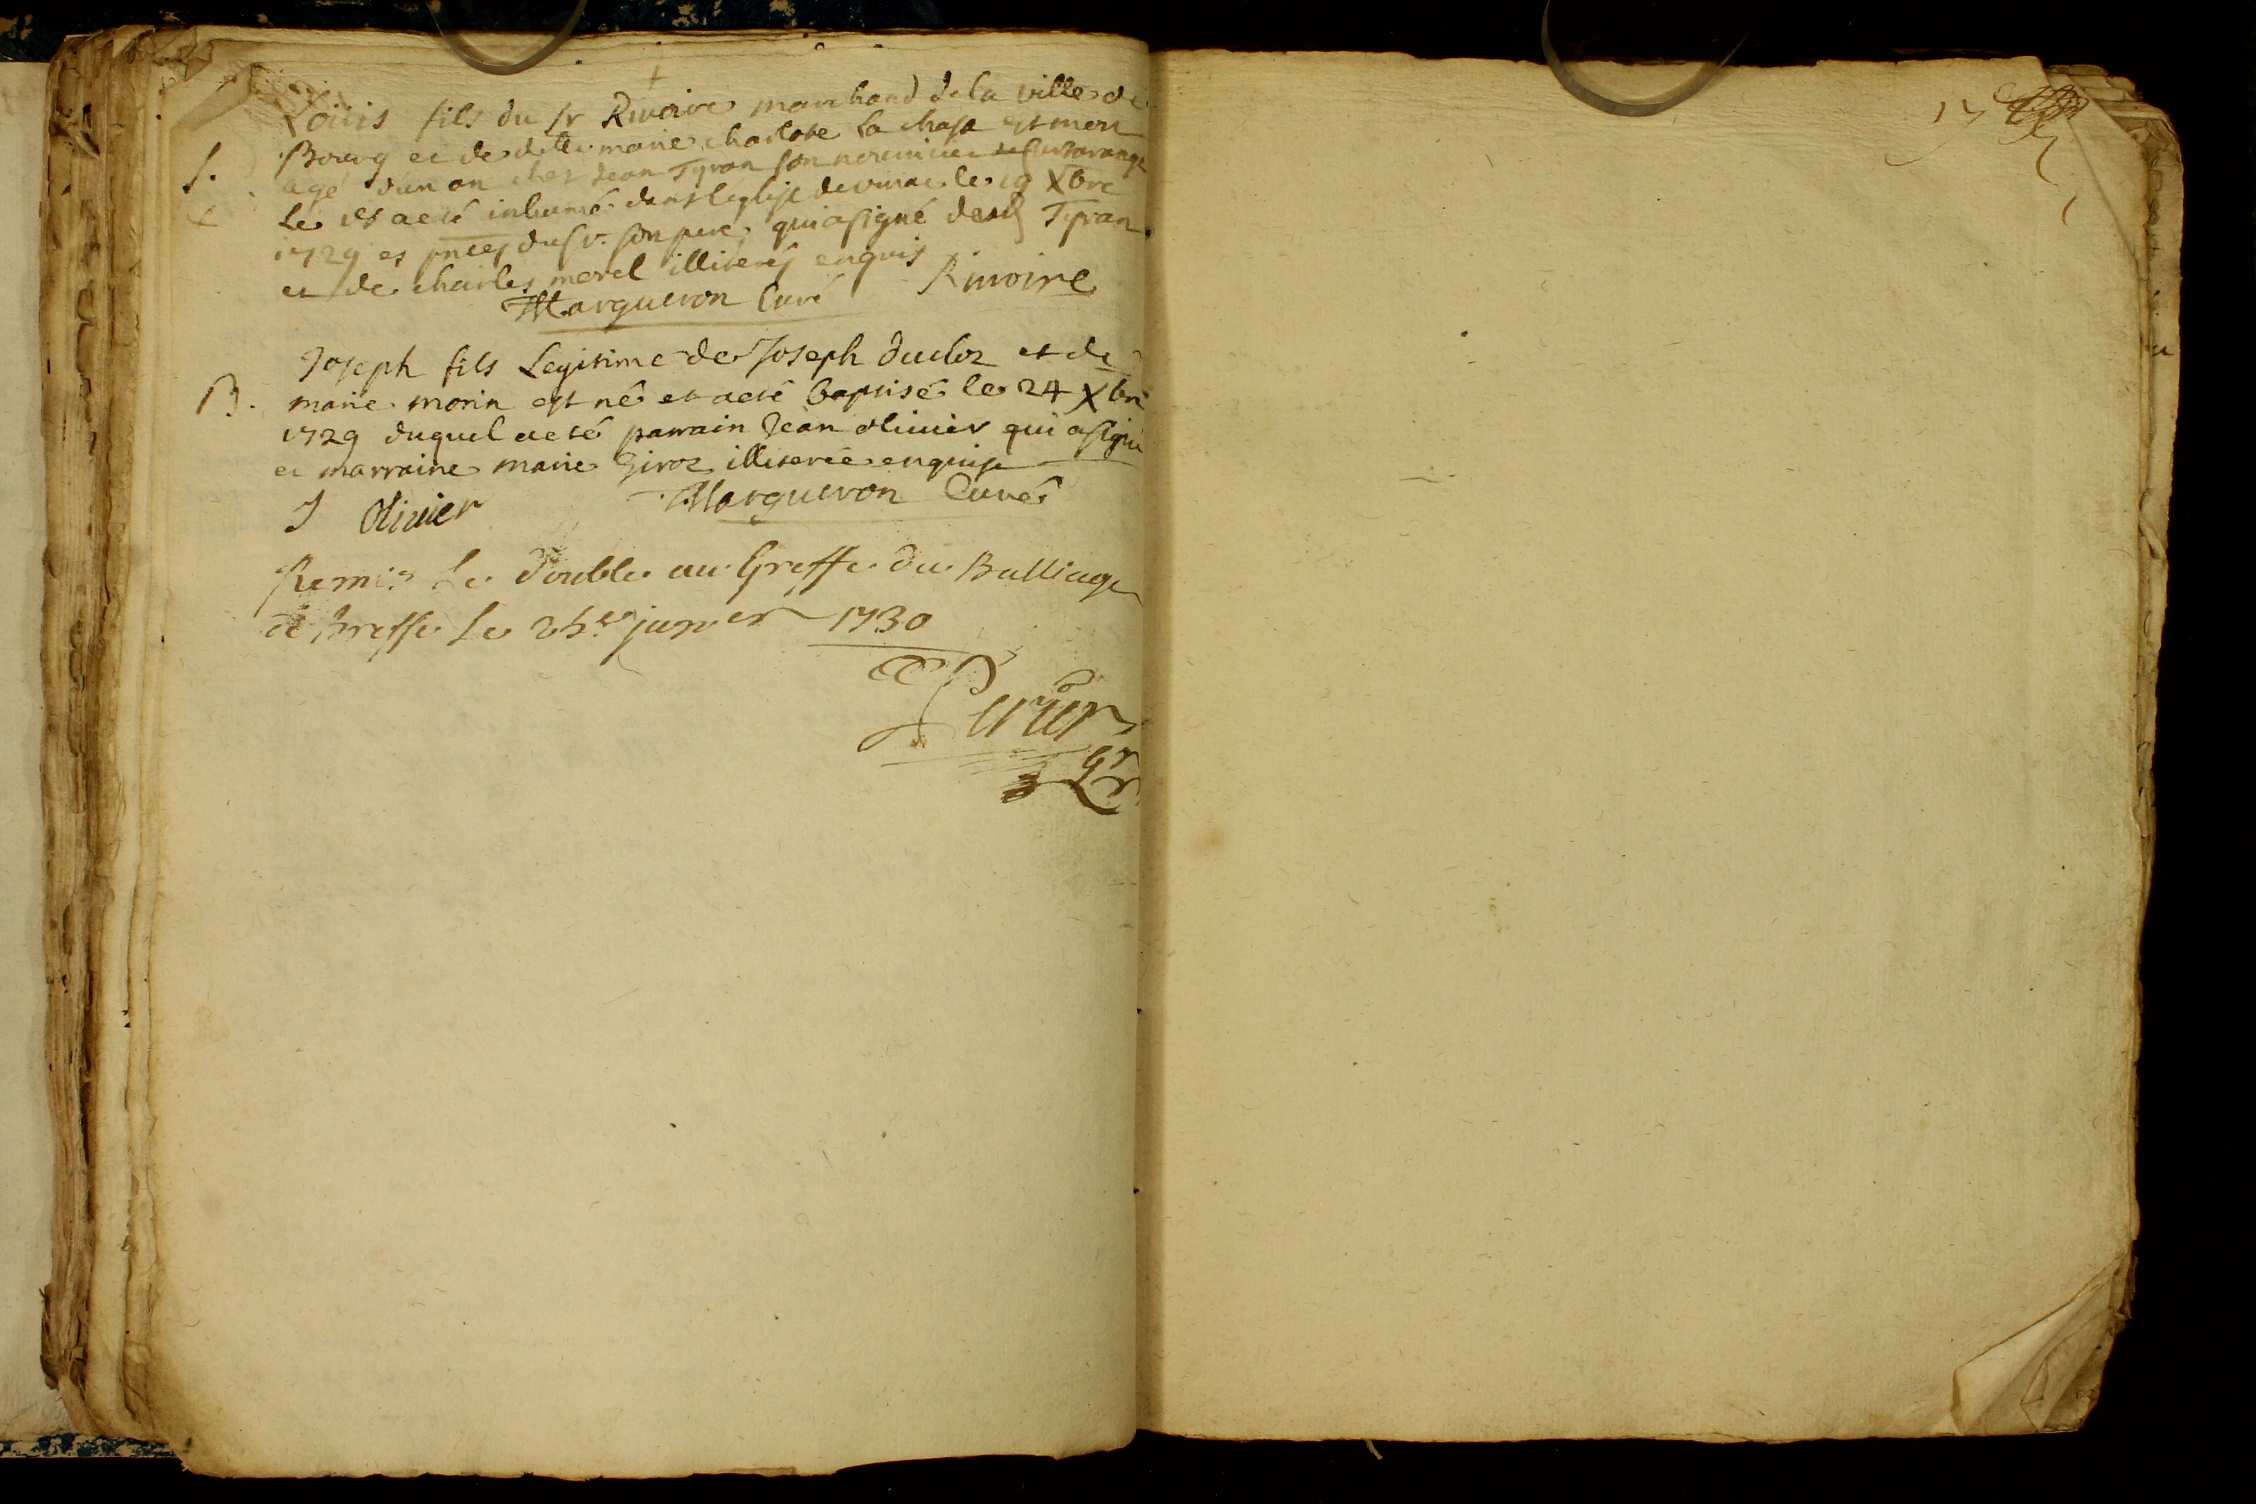 Louis fils du sr Rivoire marchand de la ville de
S. Bourg et de delle marie charlote La chasse est mort
agé d'un an chez Jean Tyran son nourricier
Le et a eté inhumé dans l'eglise de le 19 Xbre
1729 es pnces du sr. son pere, qui a signé Tyran
et de charles morel illiterés enquis
Margueron Curé Rivoire
Joseph fils Legitime de Joseph ducloz et de
B. marie morin est né et a eté baptisé le 24 Xbre
1729 duquel a eté parrain Jean olivier qui a signé
et marraine marie Giroz illiterée enquise
J Olivier Margueron Curé
Remis Le double au Greffe du Balliage
de Bresse Le janvier 1730
Perier
Gr
17